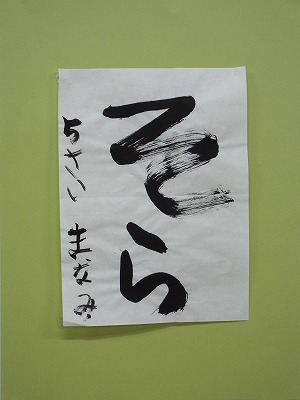 そら
5さい まなみ